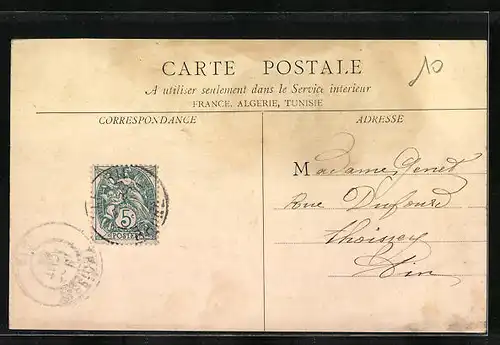 10
CARTE POSTALE
A utiliser seulement dans le Service intérieur
FRANCE, ALGERIE, TUNISIE
CORRESPONDANCE
ADRESSE
Madame Genet
Rue Dufour
thoissey
Ain
5
POSTES